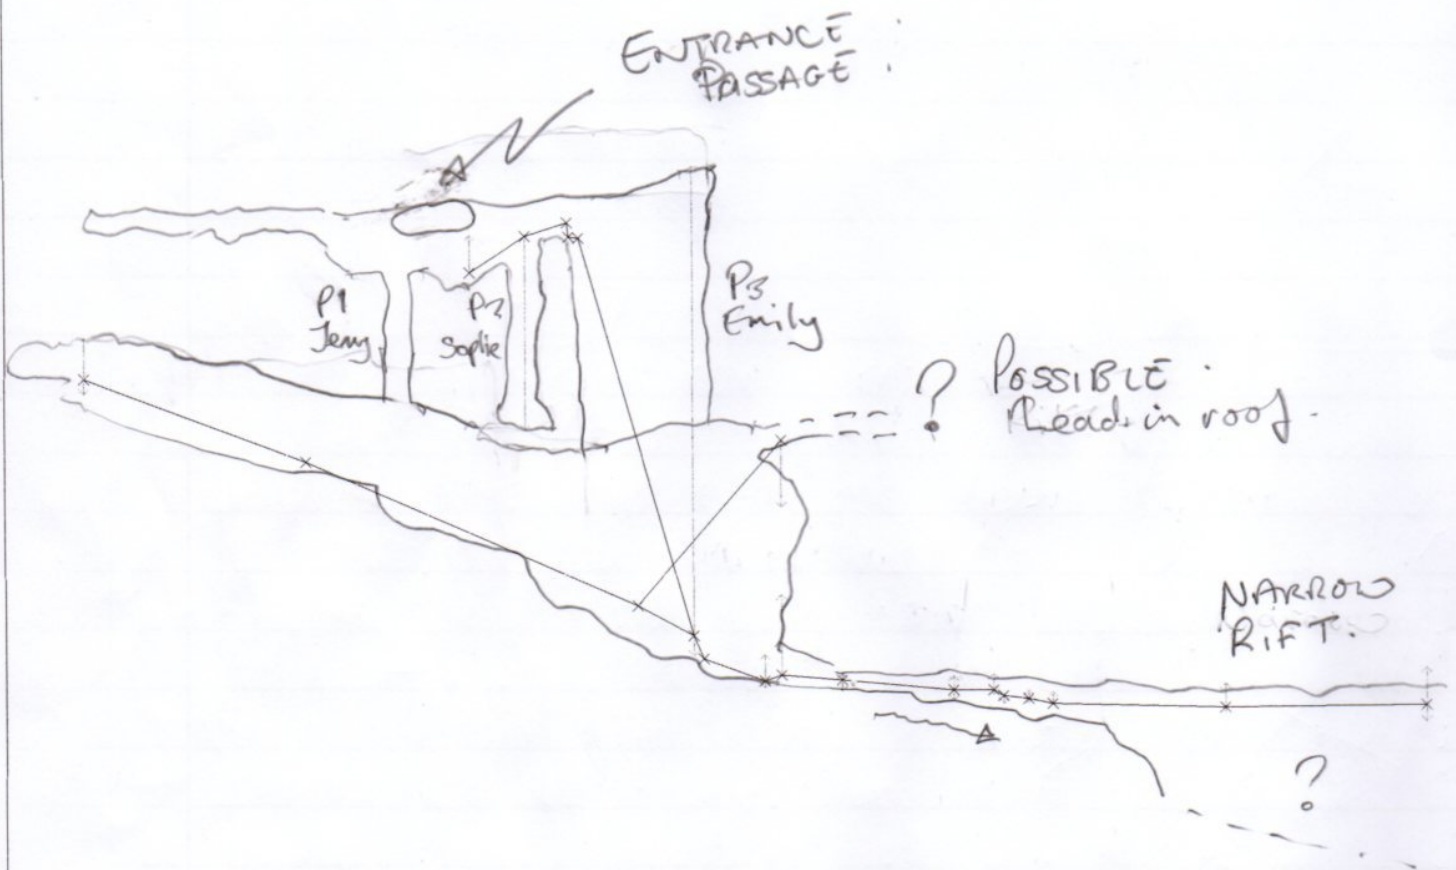 ENTRANCE
PASSAGE.
P1
Jerry
P2
Sophie
P3
Emily
? POSSIBLE
lead in roof.
NARROW
RIFT.
?